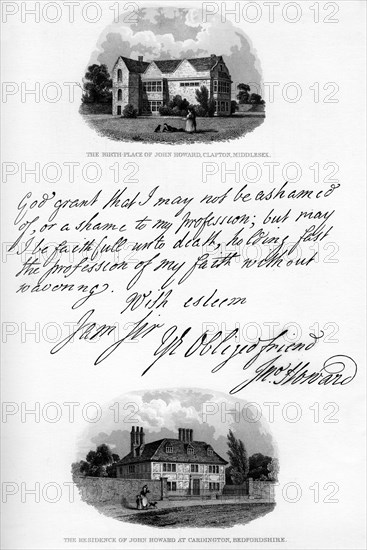 THE BIRTH-PLACE OF JOHN HOWARD, CLAPTON, MIDDLESEX.
God grant that I may not be ashamed
of, or a shame to my profession; but may
I be faithfull unto death, holding fast
the profession of my faith without
wavering.
With esteem
I am Sir
Yr Obliged friend
Jno Howard
THE RESIDENCE OF JOHN HOWARD AT CARDINGTON, BEDFORDSHIRE.
PHOTO12